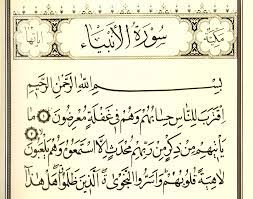 سُورَةُ الْأَنْبِيَاءِ
بِسْمِ اللَّهِ الرَّحْمٰنِ الرَّحِيمِ
اِقْتَرَبَ لِلنَّاسِ حِسَابُهُمْ وَهُمْ فِي غَفْلَةٍ مُعْرِضُونَ ۝ مَا
يَأْتِيهِمْ مِنْ ذِكْرٍ مِنْ رَبِّهِمْ مُحْدَثٍ إِلَّا اسْتَمَعُوهُ وَهُمْ يَلْعَبُونَ ۝
لَاهِيَةً قُلُوبُهُمْ وَأَسَرُّوا النَّجْوَى الَّذِينَ ظَلَمُوا هَلْ هٰذَا